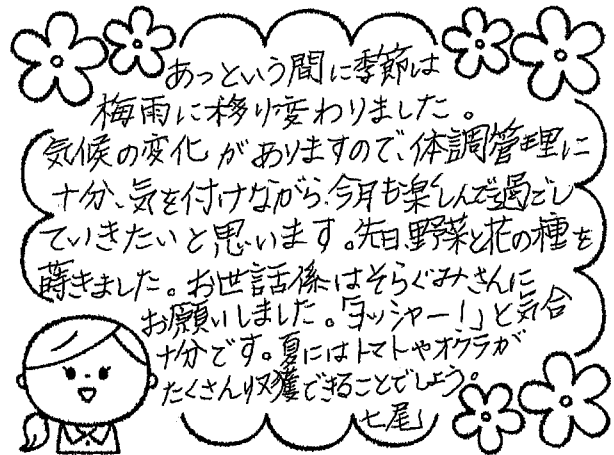 あっという間に季節は
梅雨に移り変わりました。
気候の変化がありますので、体調管理に
十分、気を付けながら、今月も楽しんで過ごし
ていきたいと思います。先日、野菜と花の種を
蒔きました。お世話係はそらぐみさんに
お願いしました。「ヨッシャー！」と気合
十分です。夏にはトマトやオクラが
たくさん収獲できることでしょう。
七尾